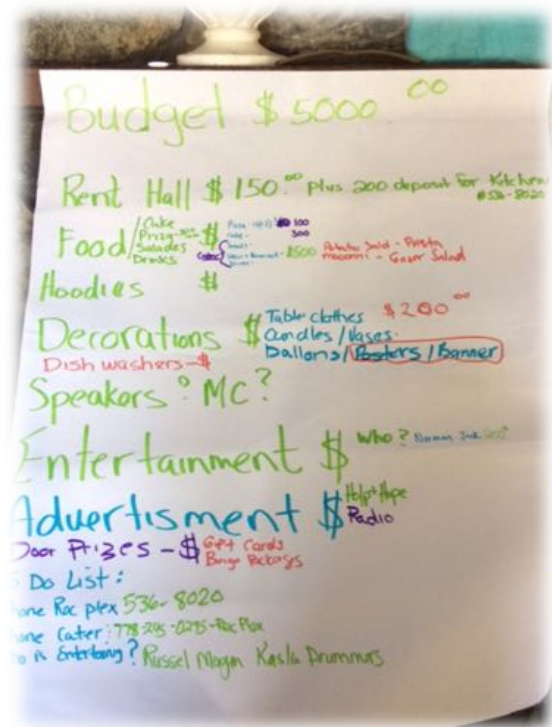 Budget $ 5000.00
Rent Hall $ 150.00 plus 200 deposit for Kitchen
536-8020
Food / Cake $ 100
Prizy 300
Salades $500 Potato Salad - Pasta
Drinks macaroni - Ceser Salad
Hoodies $
Decorations $ Table clothes $200.00
Candles / Vases.
ballons / Posters / Banner
Dish washers - $
Speakers? MC?
Entertainment $ Who?
Advertisment $ Help + Hope
Radio
Door Prizes - $ Gift Cards
Bingo Packages
Do List:
one Rec plex 536-8020
one Cater: 778-245-0295 - Rec Plex
o is Entertaing? Russel Kasla Drummers